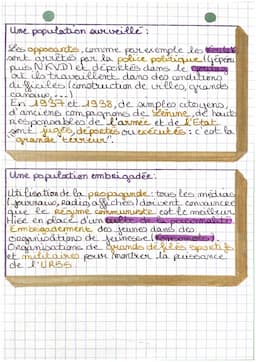 Une population surveillée :
Les opposants, comme par exemple les
sont arrêtés par la police politique (Guépéou
puis NKVD) et déportés dans le
où ils travaillent dans des conditions
difficiles (construction de villes, grands
canaux...)
En 1937 et 1938, de simples citoyens,
d'anciens compagnons de Lénine, de hauts
responsables de l'armée et de l'État
sont jugés, déportés ou exécutés : c'est la
"grande terreur".
Une population embrigadée :
Utilisation de la propagande : tous les médias
(journaux, radio, affiches) doivent convaincre
que le régime communiste est le meilleur
Mise en place d'un culte de la personnalité
Embrigadement des jeunes dans des
organisations de jeunesse
Organisations de grands défilés sportifs
et militaires pour montrer la puissance
de l'URSS.